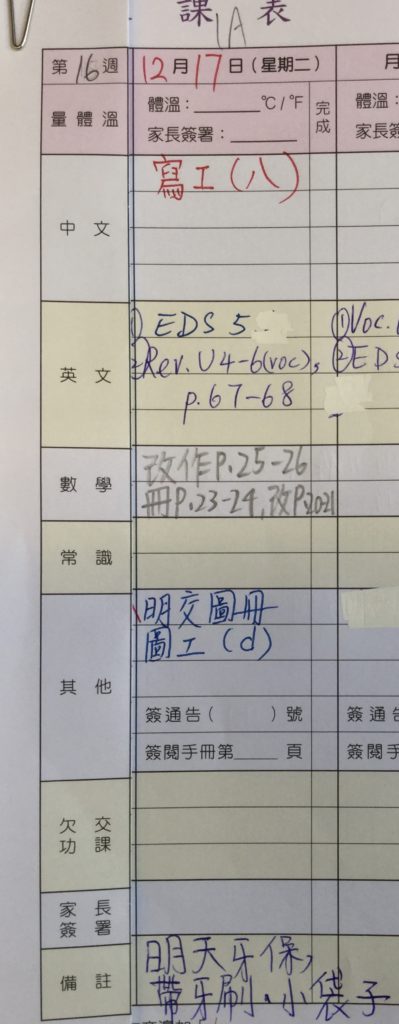 課 1A 表
第 16 週 12 月 17 日 (星期二) 月
量體溫 體溫：______ °C/°F 完成 體溫：
家長簽署：______ 家長簽
中文 寫工(八)
英文 ① EDS 5 ① Voc.
② Rev. U4-6(voc), ② EDS
p.67-68
數學 改作P.25-26
冊P.23-24,改P.2021
常識
其他 明交圖冊
圖工(d)
簽通告( )號 簽通告
簽閱手冊第____頁 簽閱手
欠交功課
家長簽署
備註 明天牙保,
帶牙刷、小袋子